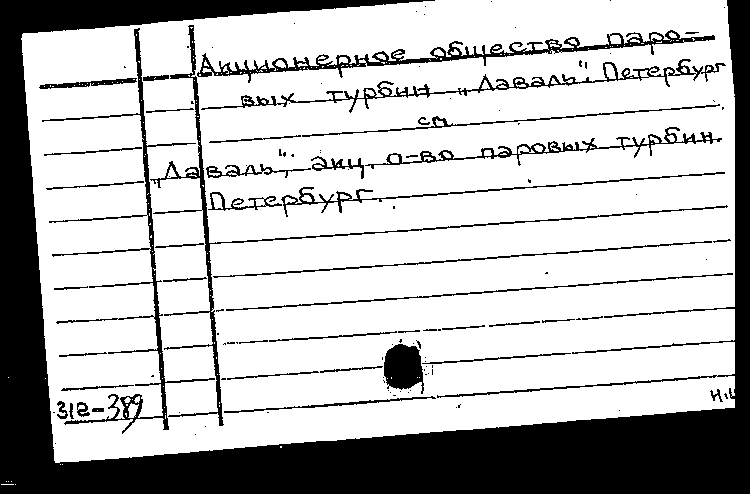 Акционерное общество паро-
вых турбин „Лаваль“. Петербург
см
„Лаваль“, акц. о-во паровых турбин.
Петербург.
312-389